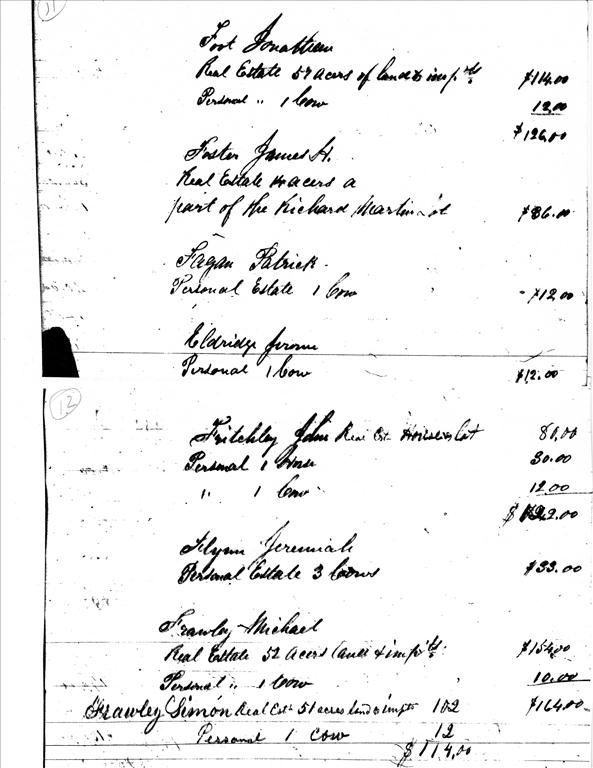 11
Foot Jonathan
Real Estate 57 acers of land & imp'ts $114.00
Personal " 1 Cow 12.00
$126.00
Foster James H.
Real Estate acers a
part of the Richard Martin Lot $36.00
Fagan Patrick
Personal Estate 1 Cow $12.00
Eldridge Jerome
Personal 1 Cow $12.00
12
Fritchley John Real Est House & Lot 80.00
Personal 1 Horse 30.00
" 1 Cow 12.00
$122.00
Flynn Jeremiah
Personal Estate 3 Cows $33.00
Frawley Michael
Real Estate 52 Acers land & imp'ts $154.00
Personal " 1 Cow 10.00
$164.00
Frawley Simon Real Est 51 acres land & impts 102
" Personal 1 Cow 12
$114.00